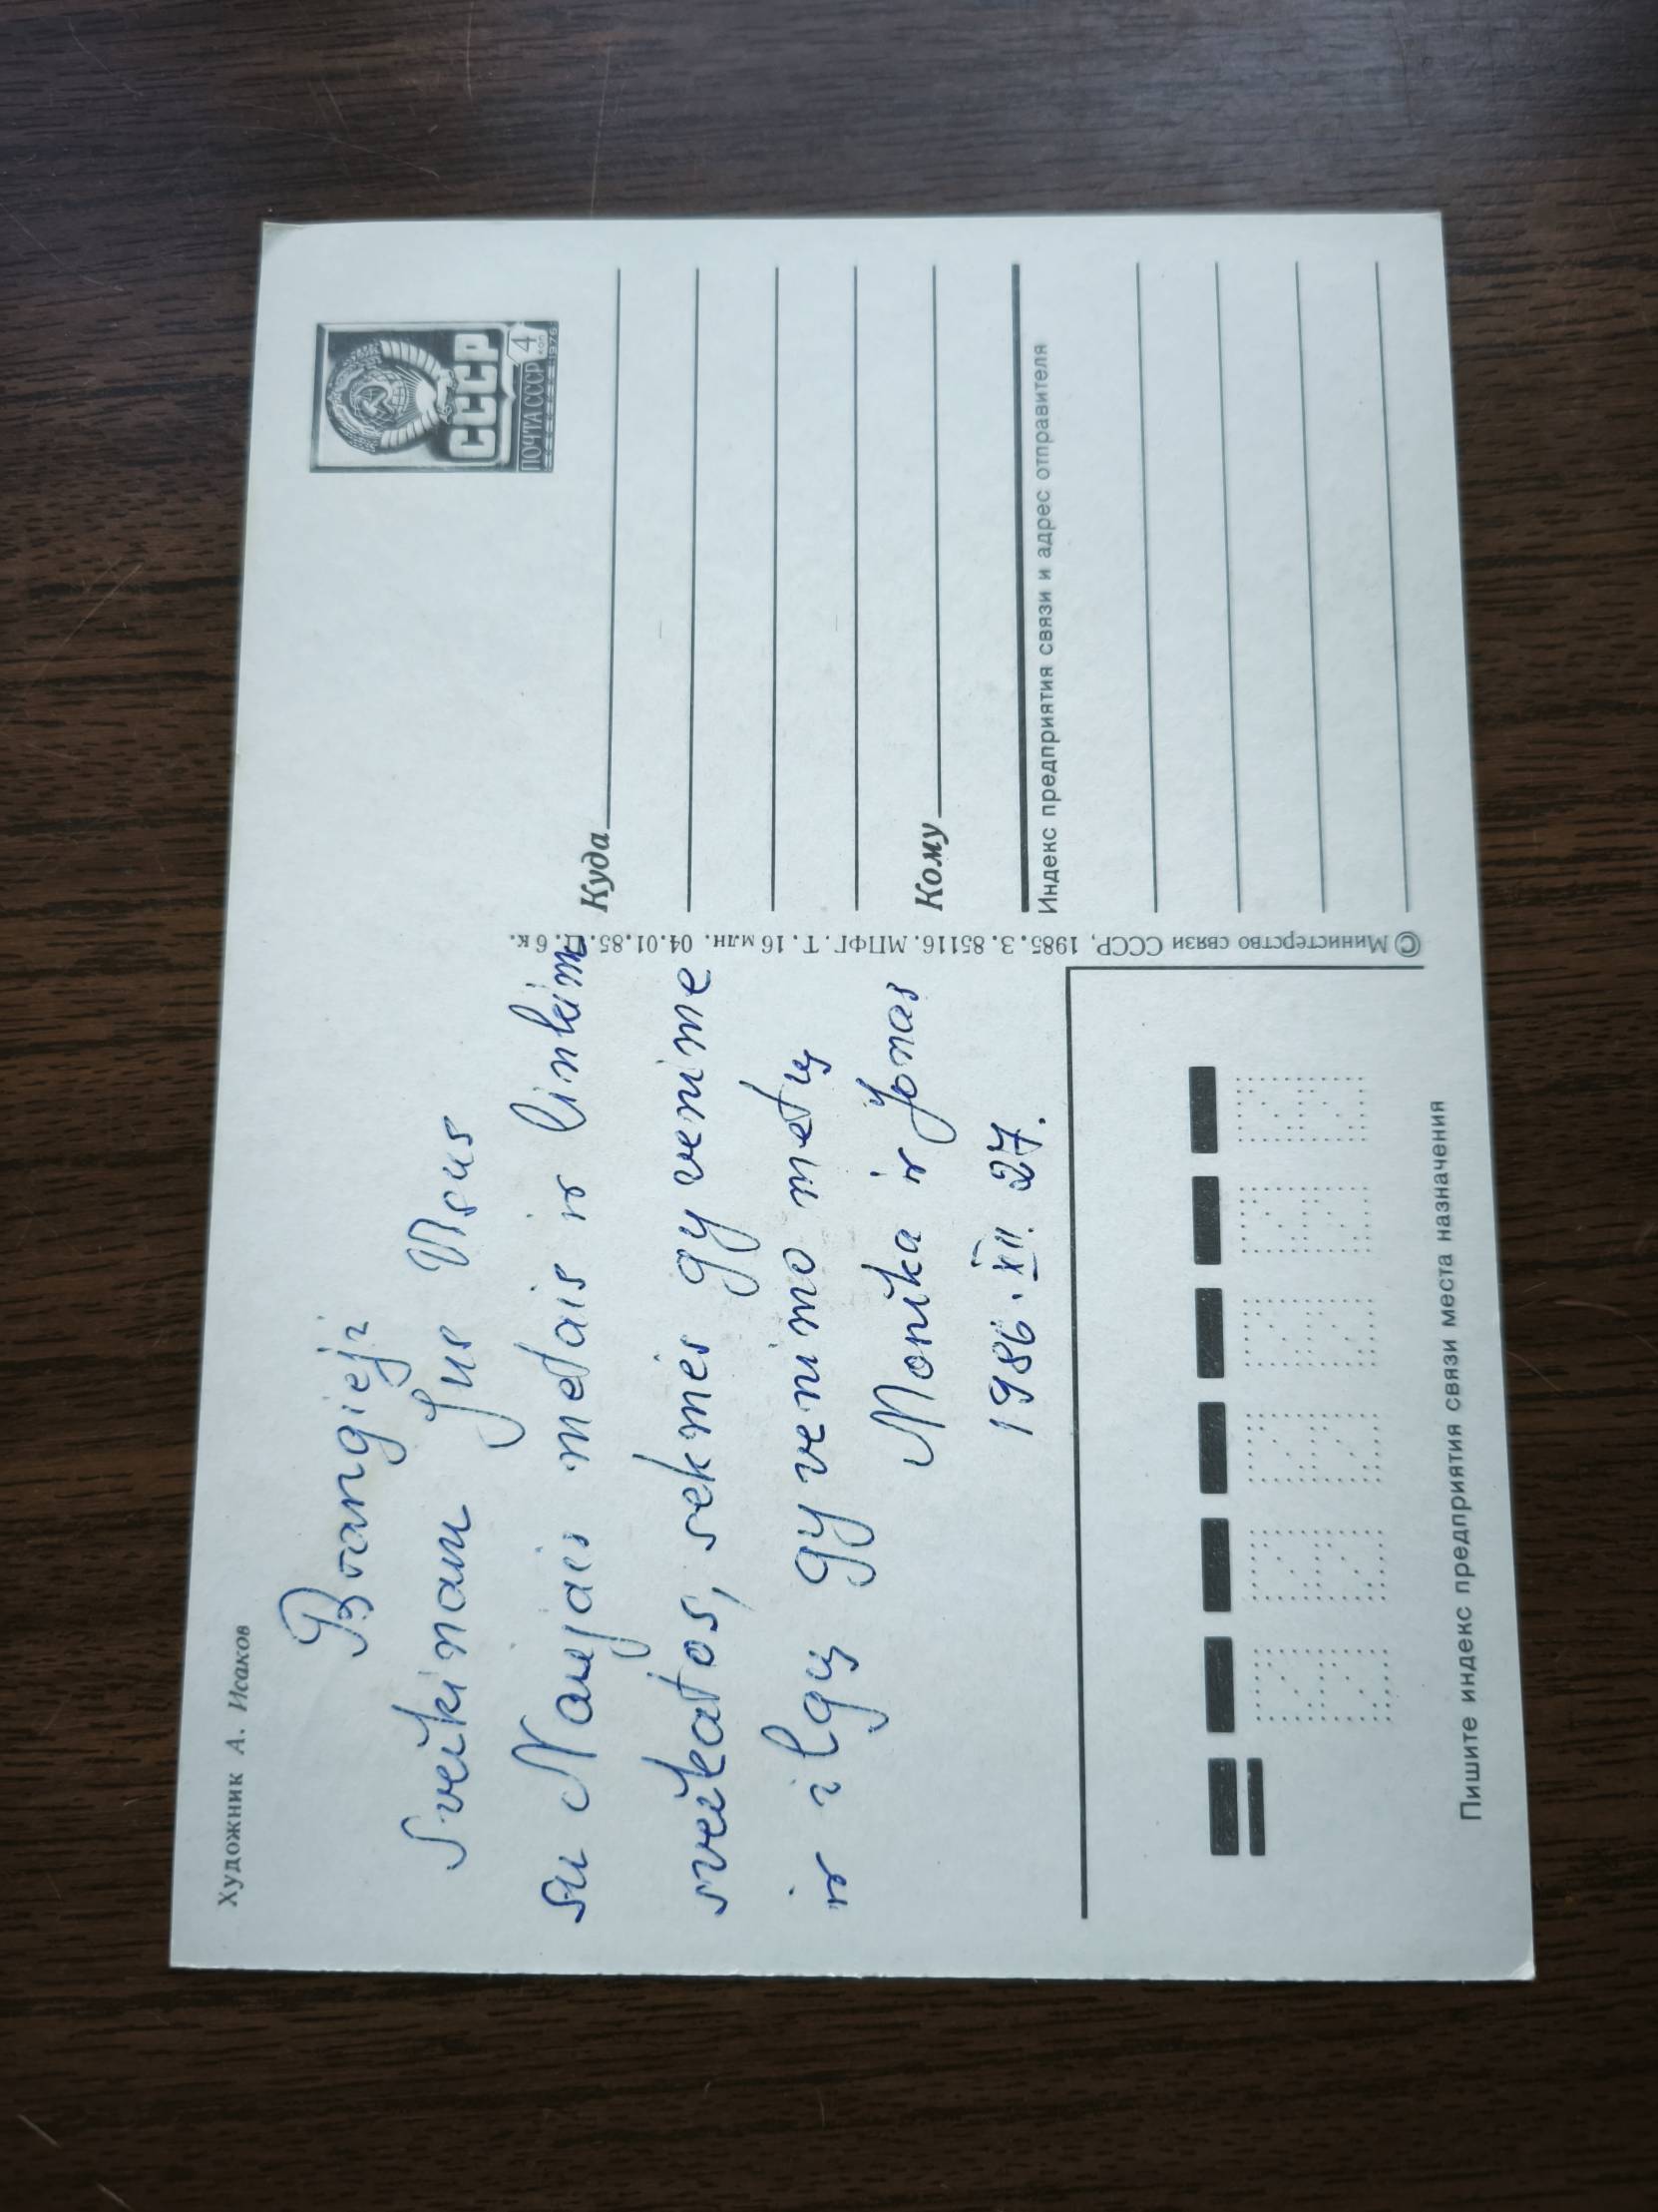 Художник А. Исаков
Brangieji
Sveikinam Jus Visus
su Naujais metais ir linkim
sveikatos, sekmės gyvenime
ir ilgų gyvenimo metų
Monika ir Jonas
1986.XII.27.
© Министерство связи СССР, 1985. З. 85116. МПФГ. Т. 16 млн. 04.01.85. Ц. 6 к.
СССР
ПОЧТА СССР 4 коп
1976
Куда
Кому
Индекс предприятия связи и адрес отправителя
Пишите индекс предприятия связи места назначения